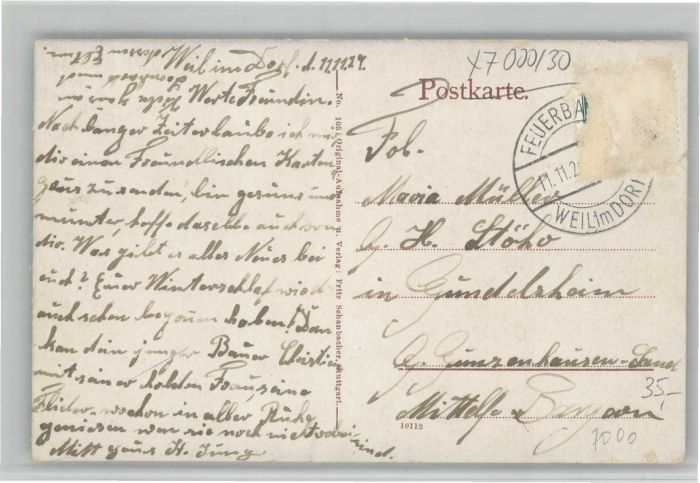 Weil im Dorf. d. 11.11.29.
Werte Freundin.
Nach langer Zeit erlaube ich mir
dir einen Freundlischen Karten
gruss zu senden, bin gesund und
munter, hoffe dasselbe auch von
dir. Was gibt es alles Neues bei
euch? Euer Winterschlaf wird
auch schon begonnen haben! Dan
kan dein junger Bauer Christian
mit seiner holden Frau, seine
in aller Ruhe
geniesen wen sie noch nicht vorbei sind.
Mitt gruss H. Jung.
No. 105 Original-Aufnahme u. Verlag: Fritz Schambacher, Stuttgart.
X7 000/30
Postkarte.
FEUERBA
11.11.2
WEIL im DORF
Maria Müller
b. H. Stöho
in Gundelsheim
b. Gunzenhausen-Land
Mittelf. Bayern
35,-
7000
10112